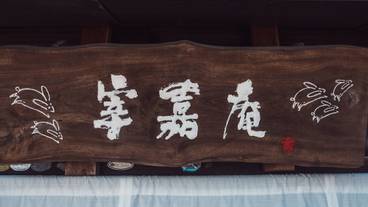 峯嘉庵